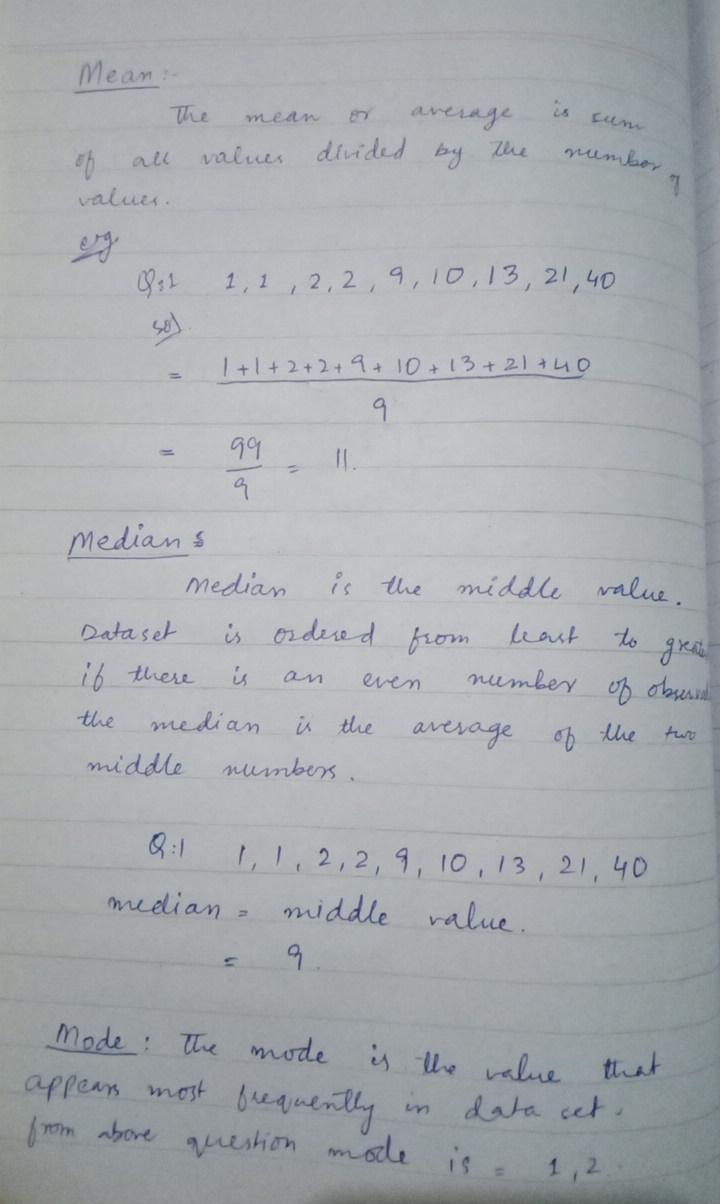 Mean :-
The mean or average is sum
of all values divided by the number of
values.
e.g
Q:1 1, 1, 2, 2, 9, 10, 13, 21, 40
sol
= 1+1+2+2+9+10+13+21+40
9
= 99 = 11.
9
Median :
Median is the middle value.
Dataset is ordered from least to
if there is an even number of
the median is the average of the two
middle numbers.
Q:1 1, 1, 2, 2, 9, 10, 13, 21, 40
median = middle value.
= 9.
Mode : The mode is the value that
appears most frequently in data set.
from above question mode is = 1, 2.